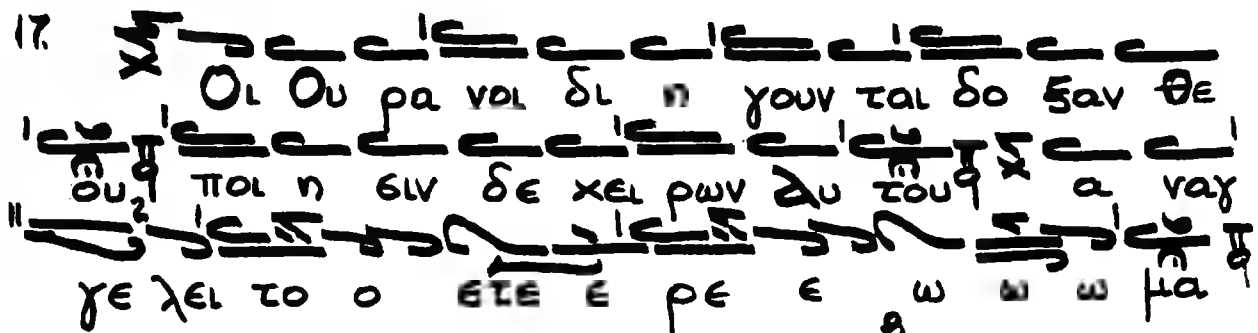 17. Οι Ου ρα νοι δι η γουν ται δο ξαν Θε
ου ποι η σιν δε χει ρων αυ του α ναγ
γε λει το ο ε τε ε ρε ε ω ω ω μα